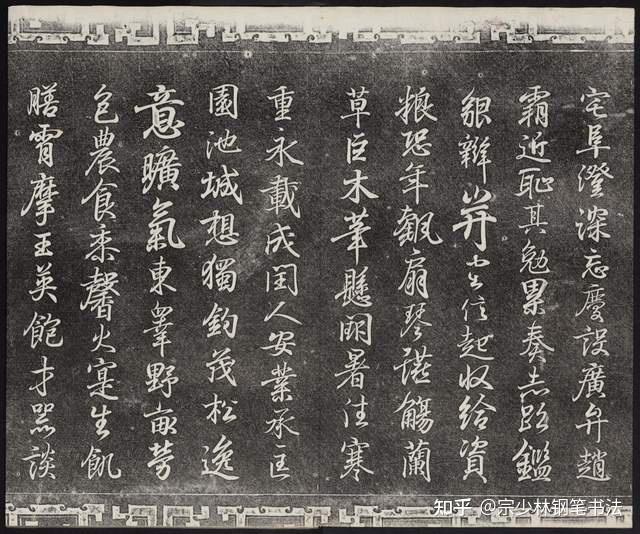 宅阜澄深忘慶設廣弁趙
霸近恥其勉累奏志路鑑
貌辨信起收給資
粮恐年飄扇琴謹觴蘭
草巨木華懸閏暑往寒
重永載成閏人安業承匡
園池城想獨鈞茂松逸
意曠氣東皋野畝勞
農食黍馨火寔生飢
膳霄摩王英飽才器談
知乎 @宗少林钢笔书法